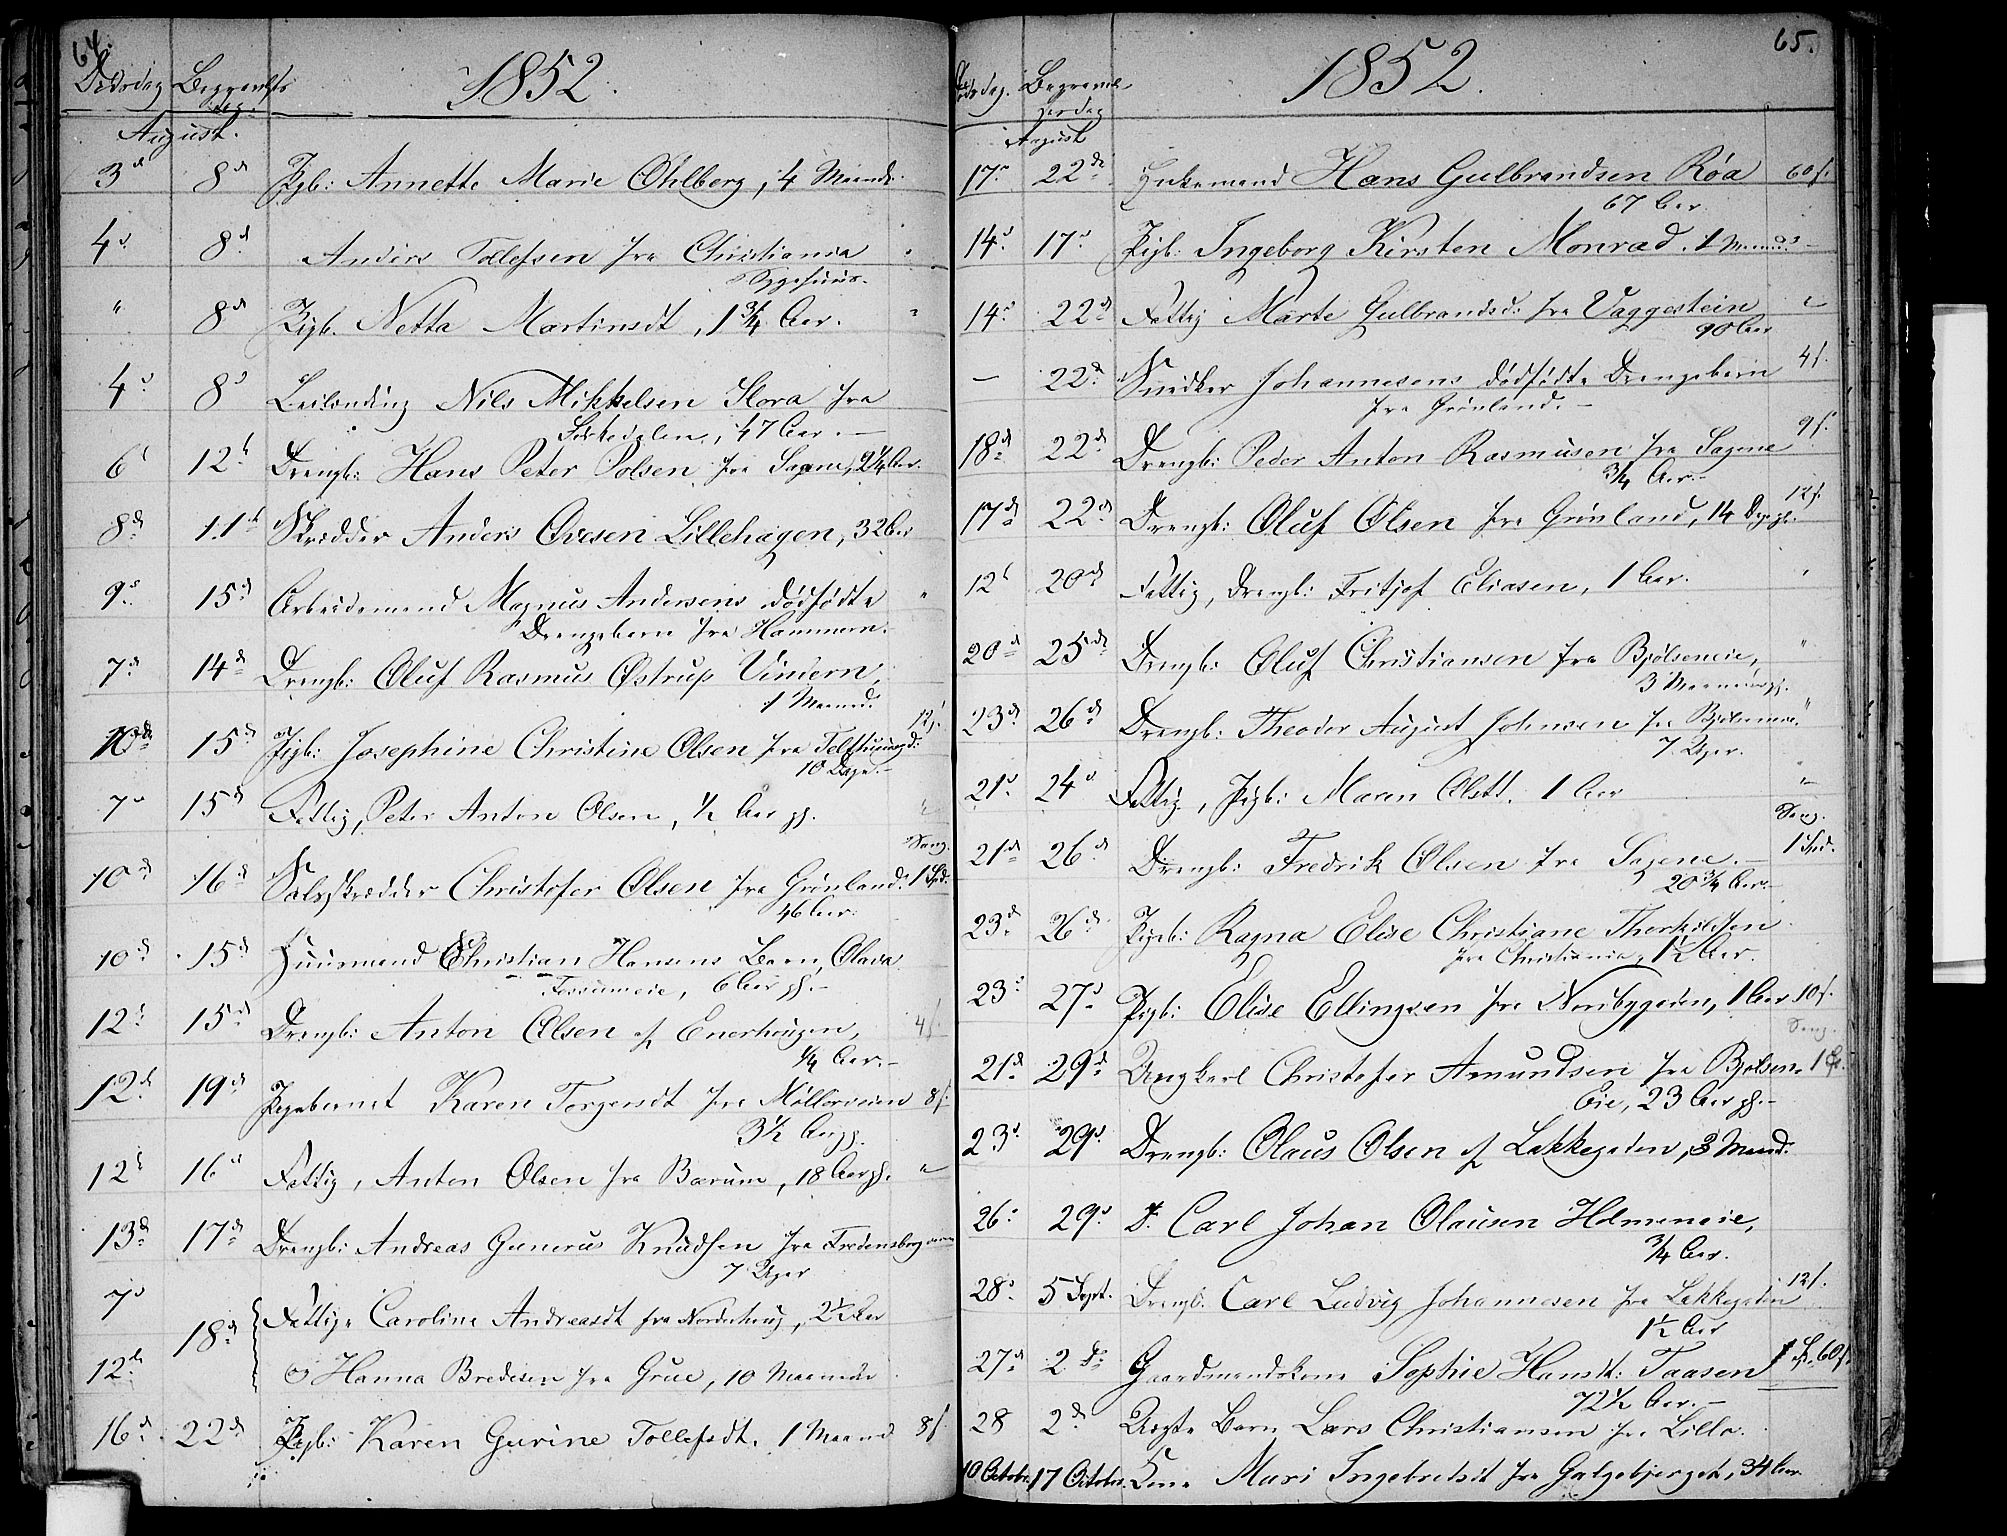 64.
Dødsdag Begravelses
dag. 1852.
August.
3d 8d Pgb: Annette Marie Ohlberg, 4 Maaneder
4d 8d Anders Tollefsen fra Christiania
Sygehuus.
" 8d Pigb. Netta Martinsdt, 1 3/4 Aar.
4d 8d Leilending Nils Mikkelsen Hora fra
Sørkedalen, 47 Aar. —
6t 12t Drengb: Hans Peter Polsen fra Sagene, 2 1/4 Aar.
8d 11t Skrædder Anders Ovesen Lillehagen, 32 Aar
9d 15d Arbeidsmand Magnus Andersens dødfødte "
Drengebarn fra Hammern.
7d 14d Drengb: Oluf Rasmus Østrup Vindern,
1 Maaned.
10d 15d Pigb: Josephine Christine Olsen fra 12 s.
10 Dage. —
7d 15d Fattig, Peter Anton Olsen, 1/2 Aar gl. "
Sang.
10d 16d Christofer Olsen fra Grønland. 1 Spd.
46 Aar.
10d 15d Huusmand Christian Hansens Barn, Olava
6 Aar gl. —
12t 15d Drengb: Anton Olsen af Enerhougen, 4 s.
1/4 Aar. —
12d 19d Pigebarnet Karen Torgersdt fra Møllerveien 8 s.
3 1/2 Aar gl.
12t 16d Fattig, Anton Olsen fra Bærum, 18 Aar gl. "
13d 17d Drengb: Andreas Gunerus Knudsen fra Fredensborgveien
7 Uger
7d Fattige Caroline Andreasdt fra Norderhoug, 2 1/2 Aar
18d
12t og Hanna Bredesen fra Grue, 10 Maaneder
16d 22d Pigb: Karen Gurine Tollefsdt. 1 Maaned 8 s.
65.
Dødsdag. Begravelsesdag 1852.
August
17d 22de Enkemand Hans Gulbrandsen Røa 60 s.
67 Aar.
14d 17d Pigb: Ingeborg Kirsten Monrad. 1 Maaned
14d 22d Fattig Marte Gulbrandsd: fra Vaggestein "
90 Aar
— 22d Snedker Johannesens dødfødte Drengebarn 4 s.
fra Grønland. —
18d 22d Drengb: Peder Anton Rasmusen fra Sagene 9 s.
3/4 Aar. —
17d 22d Drengb: Oluf Olsen fra Grønland, 14 Dage gl. 12 s.
12t 20d Fattig, Drengb: Fritjof Eliasen, 1 Aar. "
20d 25de Drengb: Oluf Christiansen fra Bjølseneie, "
3 Maaneder gl.
23d 26d Drengb: Theodor August Johnsen fra Bjølseneie. "
7 Uger.
21d 24d Fattig, Pigb: Maren Olsdt. 1 Aar "
Sang.
21d 26d Drengb: Fredrik Olsen fra Sagene. — 1 Spd.
20 3/4 Aar. —
23d 26d Pigeb: Ragna Elise Christiane Thorkildsen
fra Christiania, 1 1/2 Aar.
23d 27d Pigb: Elise Ellingsen fra Nordbygaden, 1 Aar 10 s.
Sang.
21d 29d Ungkarl Christofer Amundsen fra Bjølsen- 1 Sp.
Eie, 23 Aar gl. —
23d 29d Drengb: Olaus Olsen af Lakkegaden, 3 Maand.
26d 29d D: Carl Johan Olausen Holmeneie,
3/4 Aar.
28d 5 Sept. Drengb. Carl Ludvig Johannesen fra Lakkegaden 12 s.
1 1/2 Aar
27d 2 do Gaardmandskone Sophie Hansdt: Taasen 1 Sp. 60 s.
72 1/2 Aar. —
28 2d Ægte Barn Lars Christiansen fra Lillo.
10 Octobr. 17 Octobr. Kone Mari Ingebretsdt fra Galgebjerget, 34 Aar.